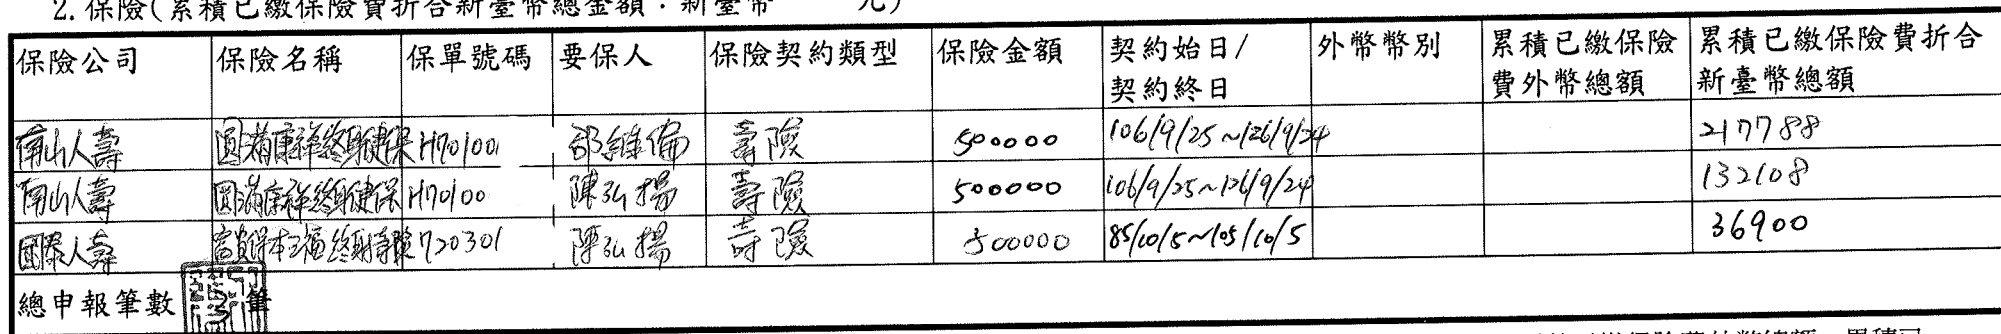 2.保險(累積已繳保險費折合新臺幣總金額：新臺幣 元)
保險公司 保險名稱 保單號碼 要保人 保險契約類型 保險金額 契約始日/契約終日 外幣幣別 累積已繳保險費外幣總額 累積已繳保險費折合新臺幣總額
南山人壽 圓滿康祥終身健保 H70100 邵維倫 壽險 500000 106/9/25~126/9/24 217788
南山人壽 圓滿康祥終身健保 H70100 陳弘揚 壽險 500000 106/9/25~126/9/24 132108
國泰人壽 富貴保本三福終身壽險 720301 陳弘揚 壽險 500000 85/10/5~105/10/5 36900
總申報筆數 3 筆